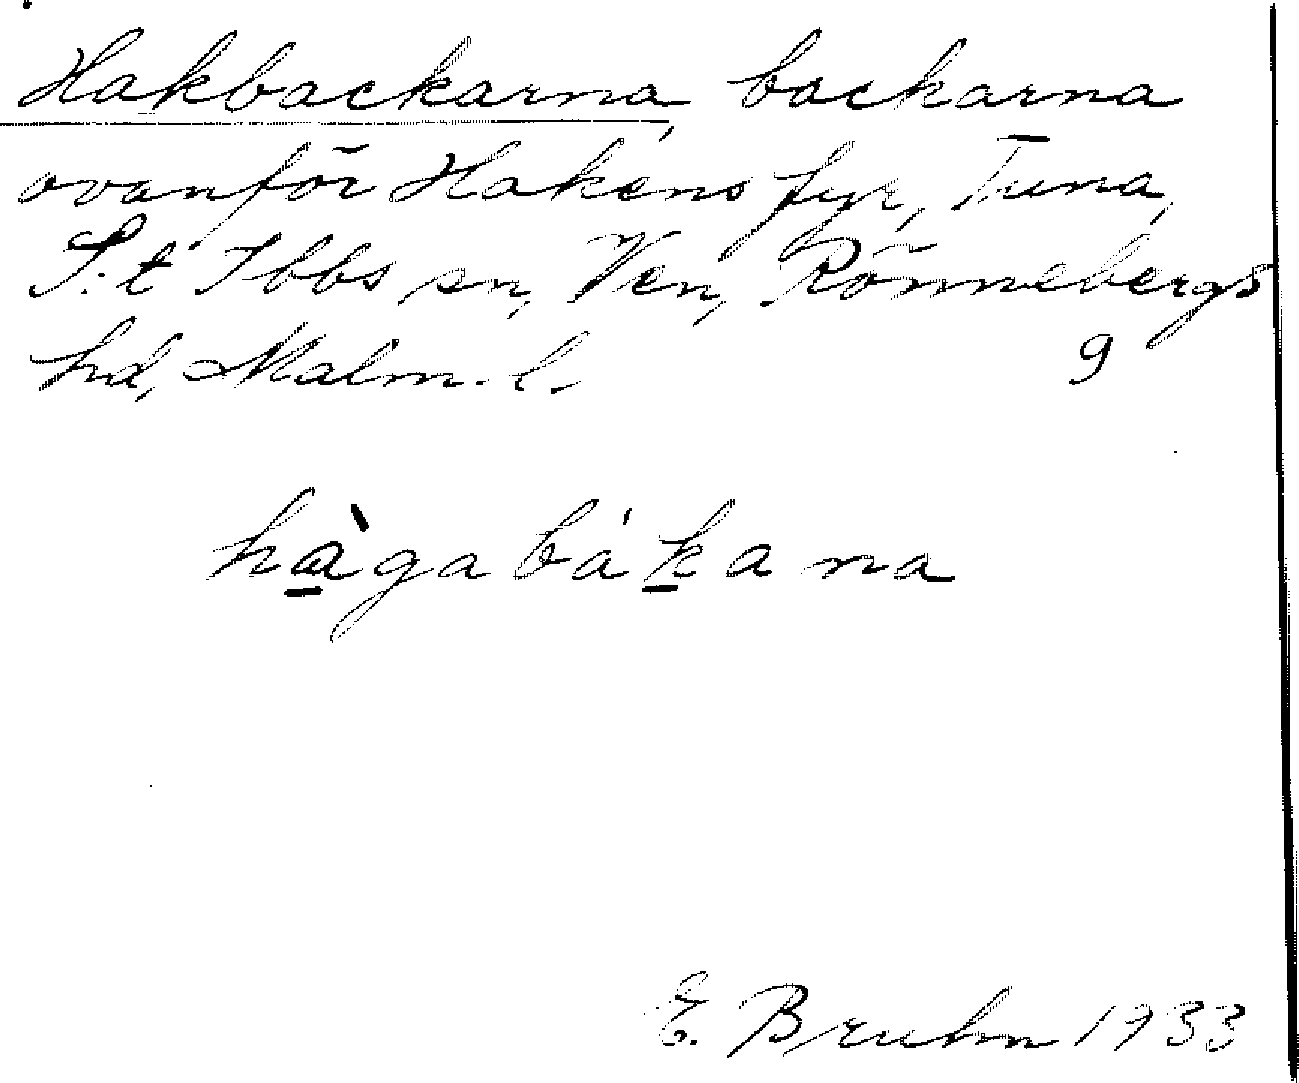 Hakbackarna, backarna
ovanför Hakens fyr, Tuna,
S:t Ibbs sn, Ven, Rönnebergs
hd, Malm. l. 9
hàgabákana
E. Bruhn 1933